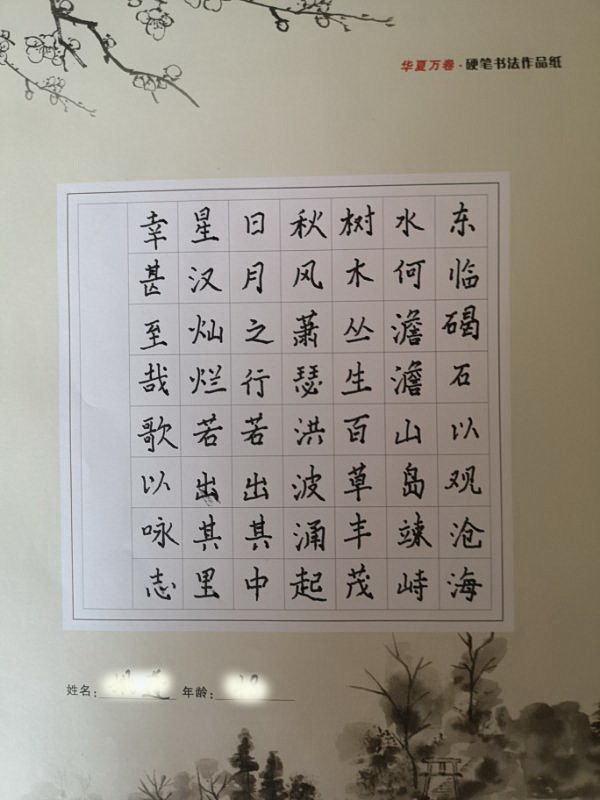 华夏万卷·硬笔书法作品纸
东临碣石以观沧海
水何澹澹山岛竦峙
树木丛生百草丰茂
秋风萧瑟洪波涌起
日月之行若出其中
星汉灿烂若出其里
幸甚至哉歌以咏志
姓名: 年龄: